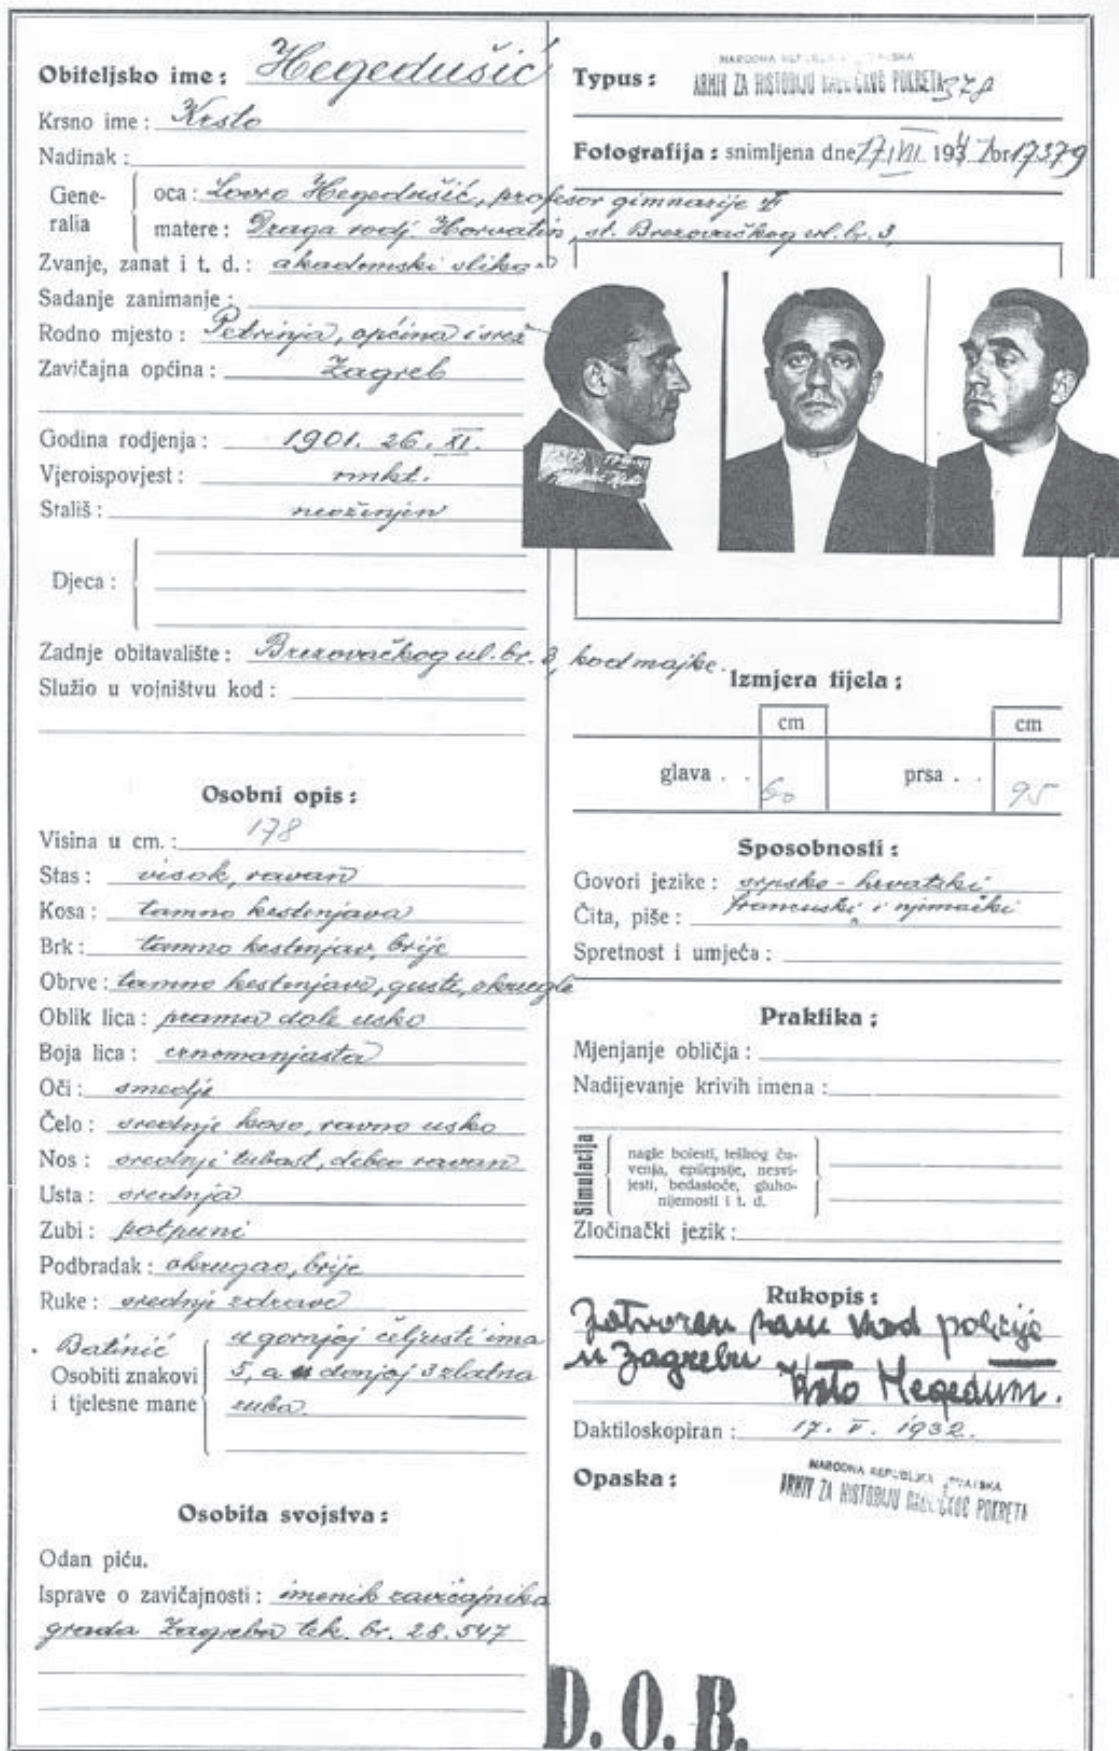 Obiteljsko ime: Hegedušić
Krsno ime: Krsto
Nadinak:
Gene-
ralia
oca: Lovro Hegedušić, profesor gimnazije
matere: Draga rodj. Horvatin, st. Brezovačkog ul. br. 3,
Zvanje, zanat i t. d.: akademski slikar
Sadanje zanimanje:
Rodno mjesto: Petrinja, općina i srez
Zavičajna općina: Zagreb
Godina rodjenja: 1901. 26. XI.
Vjeroispovjest: rmkt.
Stališ: neoženjen
Djeca:
Zadnje obitavalište: Brezovačkog ul. br. 3, kod majke.
Služio u vojništvu kod:
Osobni opis:
Visina u cm.: 178
Stas: visok, ravan
Kosa: tamno kestenjava
Brk: tamno kestenjav, brije
Obrve: tamno kestenjave, guste, okrugle
Oblik lica: prama dole usko
Boja lica: crnomanjasta
Oči: smedje
Čelo: srednje koso, ravno usko
Nos: srednji tubast, debeo ravan
Usta: srednja
Zubi: potpuni
Podbradak: okrugao, brije
Ruke: srednje zdrave
Batinić
Osobiti znakovi
i tjelesne mane
u gornjoj čeljusti ima
5, a u donjoj 3 zlatna
zuba.
Osobita svojstva:
Odan piću.
Isprave o zavičajnosti: imenik zavičajnika
grada Zagreba tek. br. 28.547
Typus:
NARODNA REPUBLIKA HRVATSKA
ARHIV ZA HISTORIJU RADNIČKOG POKRETA 378
Fotografija: snimljena dne 17/VII 1941 br 17379
Izmjera tijela:
cm cm
glava . . 60 prsa . . 95
Sposobnosti:
Govori jezike: srpsko-hrvatski
Čita, piše: francuski i njemački
Spretnost i umjeća:
Praktika:
Mjenjanje obličja:
Nadijevanje krivih imena:
Simulacija
nagle bolesti, teškog ču-
venja, epilepsije, nesvi-
jesti, bedastoće, gluho-
nijemosti i t. d.
Zločinački jezik:
Rukopis:
Zatvoren sam kod policije
u Zagrebu
Krsto Hegedušić.
Daktiloskopiran: 17. V. 1932.
Opaska:
NARODNA REPUBLIKA HRVATSKA
ARHIV ZA HISTORIJU RADNIČKOG POKRETA
D. O. B.